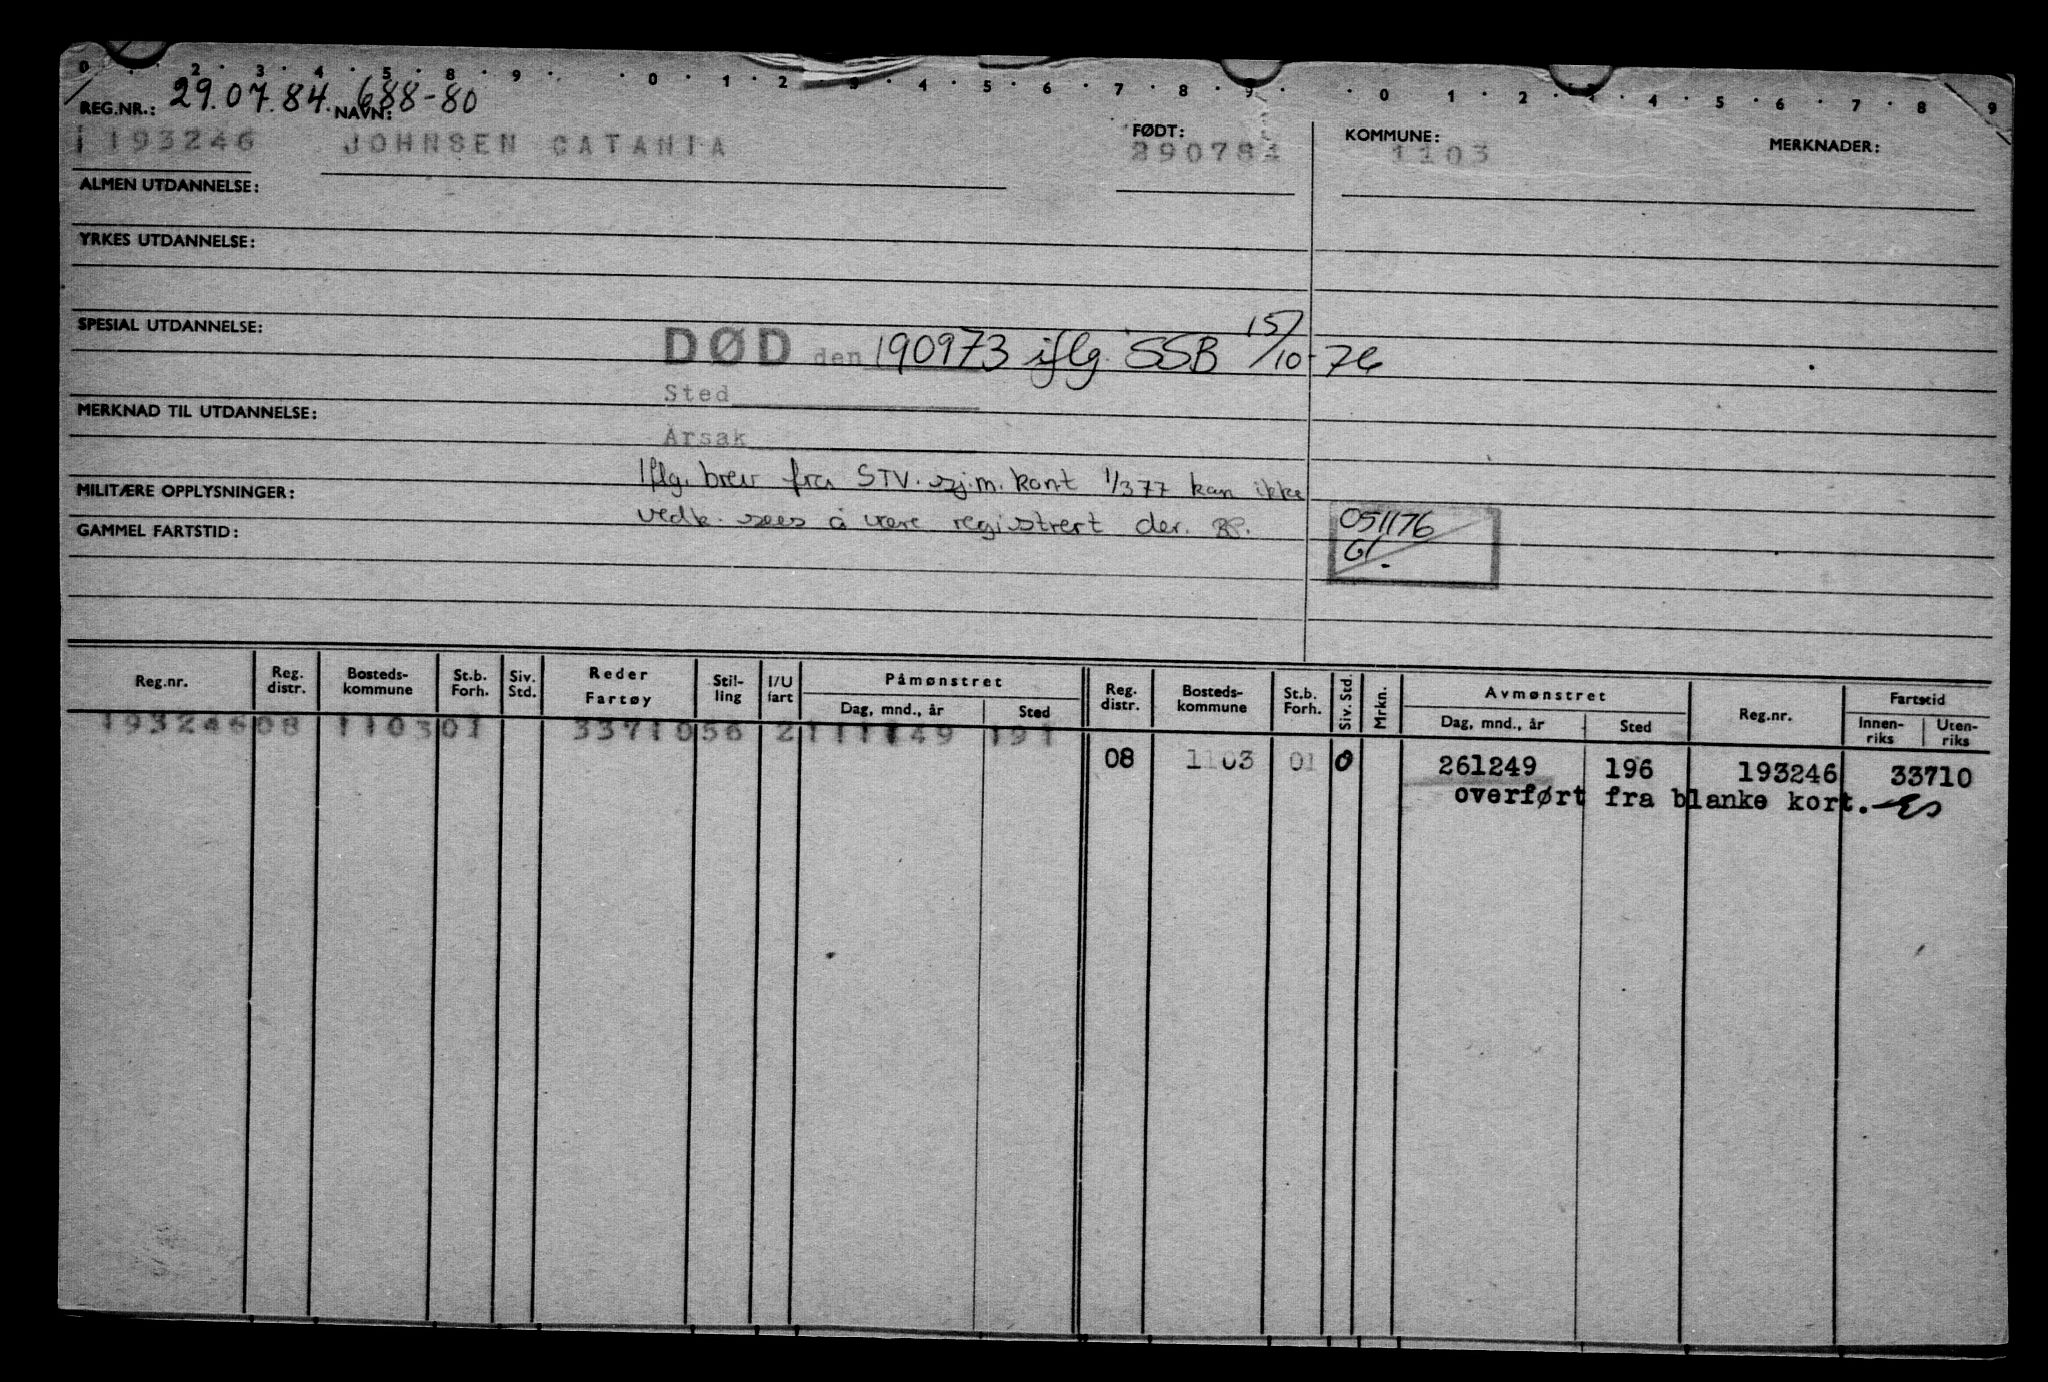 0 . . 2 . 3 . 4 . 5 . 8 . 9 . . 0 . 1 . 2 3 . 4 . 5 . 6 . 7 . 8 . 9 . . 0 . 1 . 2 . 3 . 4 . 5 . 6 . 7 . 8 . 9
REG.NR.: 29.07.84. NAVN: 688-80
193246 JOHNSEN CATANIA FØDT: 290784 KOMMUNE: 1103 MERKNADER:
ALMEN UTDANNELSE:
YRKES UTDANNELSE:
SPESIAL UTDANNELSE:
DØD den 190973 iflg. SSB 15/10-76
Sted
MERKNAD TIL UTDANNELSE:
Årsak
Iflg. brev fra STV. sj.m. kont 1/3 77 kan ikke
MILITÆRE OPPLYSNINGER:
vedk. sees å være registrert der.
GAMMEL FARTSTID:
051176
Gl.
Reg.nr. Reg. distr. Bosteds-kommune St.b. Forh. Siv. Std. Reder Fartøy Stil-ling I/U fart Påmønstret Dag, mnd., år Sted Reg. distr. Bosteds-kommune St.b. Forh. Siv. Std. Mrkn. Avmønstret Dag, mnd., år Sted Reg.nr. Fartstid Innen-riks Uten-riks
193246 08 1103 01 33710 56 2 111149 191
08 1103 01 0 261249 196 193246 33710
overført fra blanke kort.